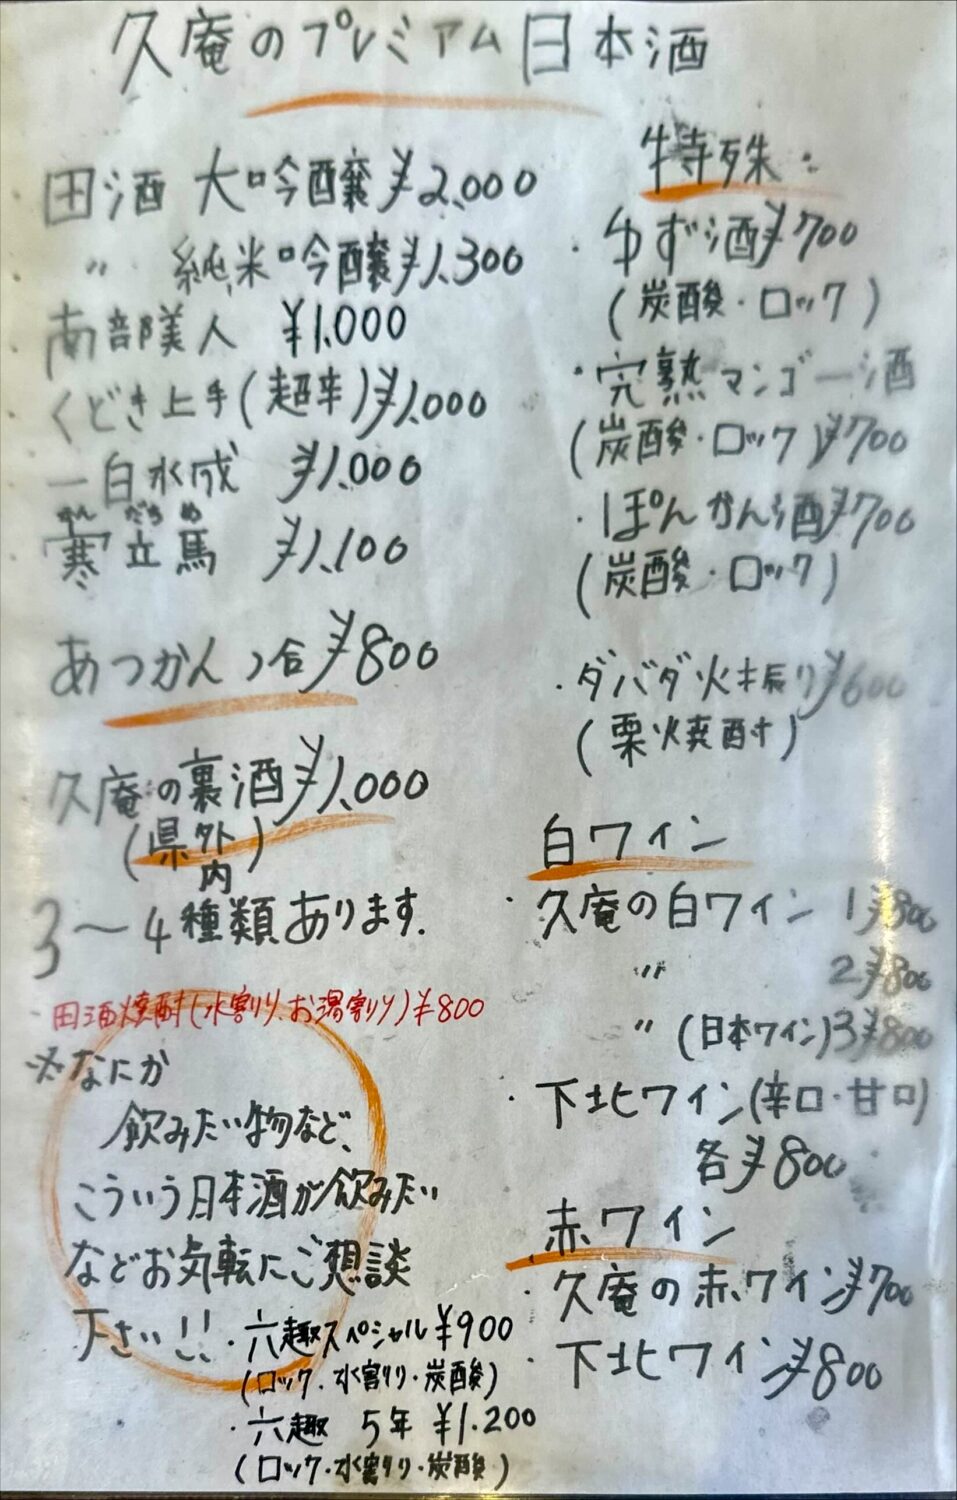 久庵のプレミアム日本酒
田酒 大吟醸 ¥2,000
〃 純米吟醸 ¥1,300
南部美人 ¥1.000
くどき上手(超辛)¥1,000
一白水成 ¥1.000
かん だち め
寒立馬 ¥1,100
あつかん 1合 ¥800
久庵の裏酒 ¥1,000
(県外内)
3〜4種類あります.
田酒焼酎(水割り、お湯割り)¥800
※なにか
飲みたい物など、
こういう日本酒が飲みたい
などお気軽にご想談
下さい!!
・六趣スペシャル ¥900
(ロック・水割り・炭酸)
・六趣 5年 ¥1.200
(ロック・水割り・炭酸)
特殊:
・ゆず酒 ¥700
(炭酸・ロック)
・完熟マンゴー酒
(炭酸・ロック)¥700
・ぽんかん酒 ¥700
(炭酸・ロック)
・ダバダ火振り ¥600
(栗焼酎)
白ワイン
・久庵の白ワイン 1 ¥800
〃 2 ¥800
〃 (日本ワイン)3 ¥800
・下北ワイン(辛口・甘口)
各 ¥800
赤ワイン
・久庵の赤ワイン ¥700
・下北ワイン ¥800